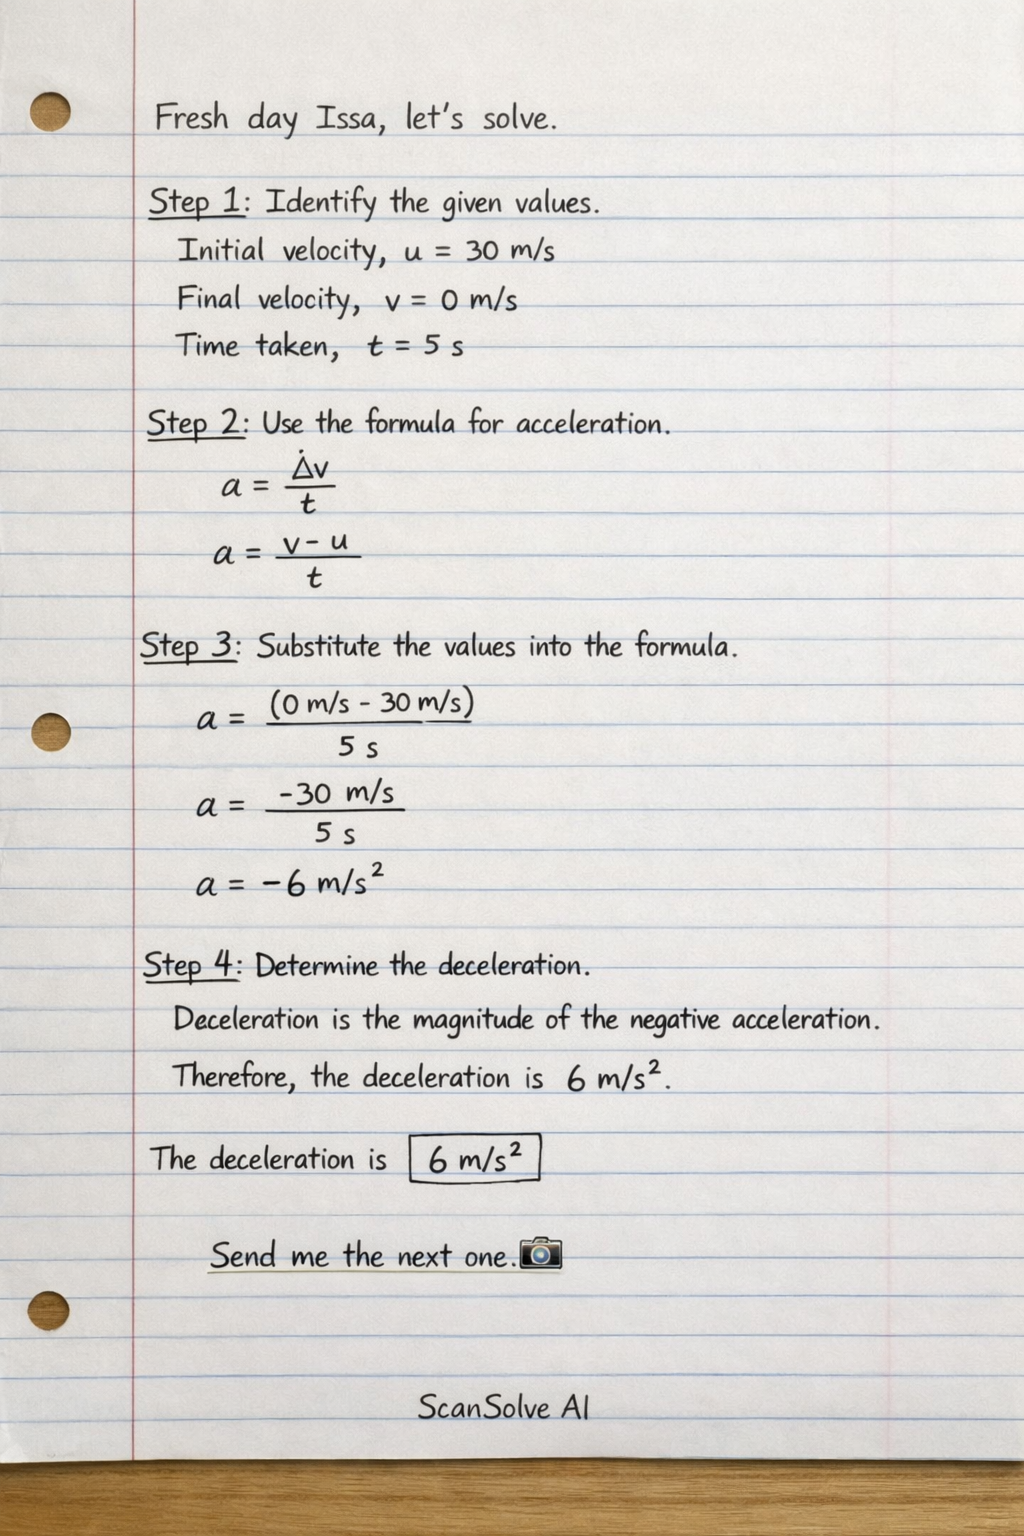 Fresh day Issa, let's solve.
Step 1: Identify the given values.
Initial velocity, u = 30 m/s
Final velocity, v = 0 m/s
Time taken, t = 5 s
Step 2: Use the formula for acceleration.
a = Δv / t
a = v - u / t
Step 3: Substitute the values into the formula.
a = (0 m/s - 30 m/s) / 5 s
a = -30 m/s / 5 s
a = -6 m/s²
Step 4: Determine the deceleration.
Deceleration is the magnitude of the negative acceleration.
Therefore, the deceleration is 6 m/s².
The deceleration is 6 m/s²
Send me the next one.📷
ScanSolve AI